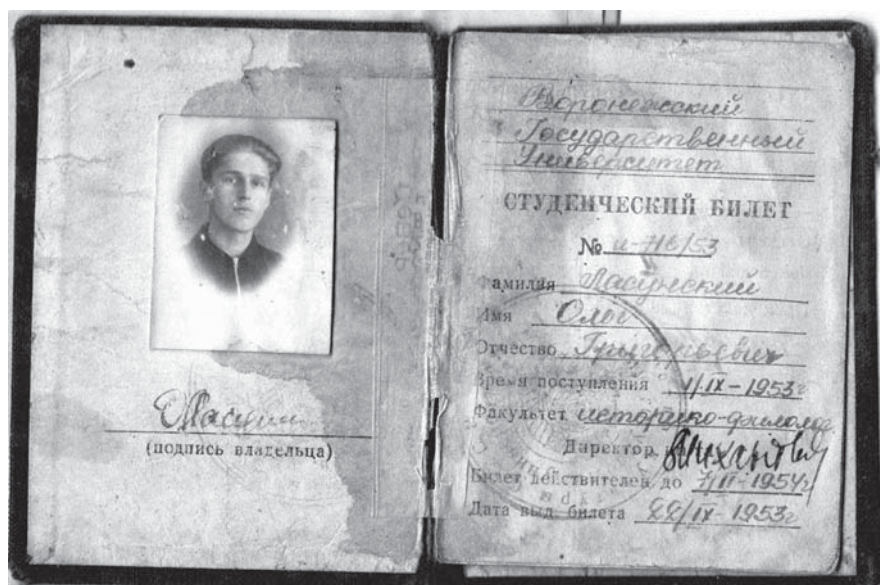 (подпись владельца)
Воронежский
Государственный
Университет
СТУДЕНЧЕСКИЙ БИЛЕТ
№ и-716/53
Фамилия Ласунский
Имя Олег
Отчество Григорьевич
Время поступления 1/IX-1953г
Факультет историко-филолог
Директор
Билет действителен до 7/II-1954г
Дата выд. билета XX/IX-1953г